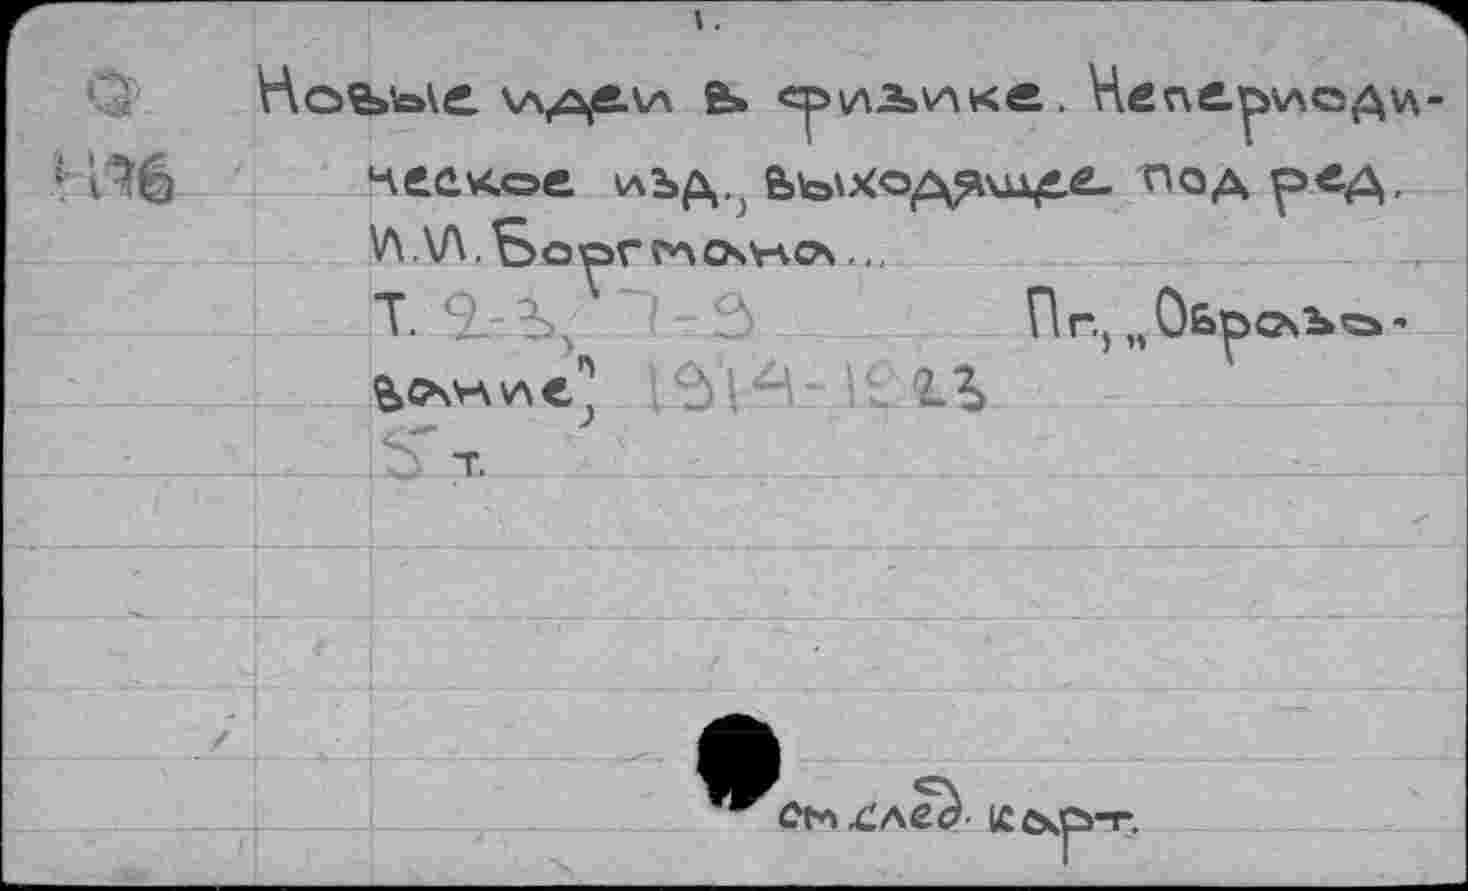 1.
Новые идеи в физике. Непериоди-
Н76 ческое изд., выходящее под ред.
И.И. Боргмана...
Т. 2-3, 7-9 Пг., „Образо-
вание", 1914-1923
5 т.
см след. карт.